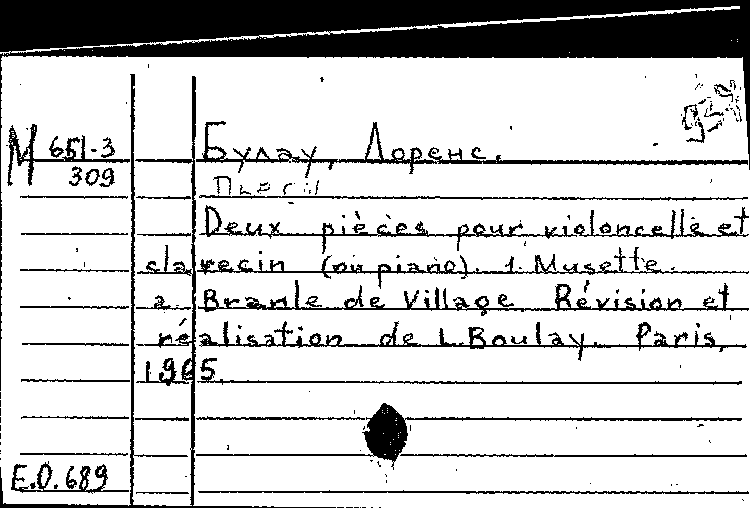 939
М 651-3
309
Булау, Лоренс.
Пьесы
Deux pièces pour violoncelle et
clavecin (ou piano). 1. Musette.
2. Branle de Village Révision et
réalisation de L. Boulay. Paris,
1965.
E.D.689